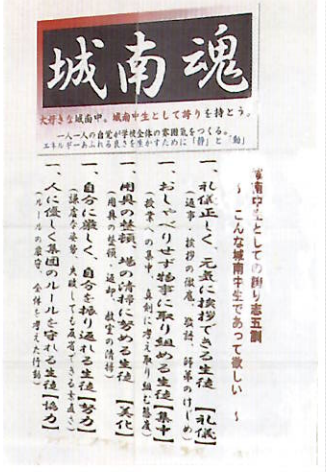 城南魂
大好きな城南中。城南中生として誇りを持とう。
一人一人の自覚が学校全体の雰囲気をつくる。
エネルギーあふれる良さを生かすために「静」と「動」
城南中生としての誇り志五訓
～ こんな城南中生であって欲しい ～
一、礼儀正しく、元気に挨拶できる生徒【礼儀】
(返事・挨拶の徹底、敬語、師弟のけじめ)
一、おしゃべりせず物事に取り組める生徒【集中】
(授業への集中、真剣に考え取り組む態度)
一、用具の整頓、場の清掃に努める生徒【美化】
(用具の整頓・返却、教室の清掃)
一、自分に厳しく、自分を振り返れる生徒【努力】
(謙虚な姿勢、失敗しても反省できる素直さ)
一、人に優しく集団のルールを守れる生徒【協力】
(ルールの厳守、全体を考えた行動)